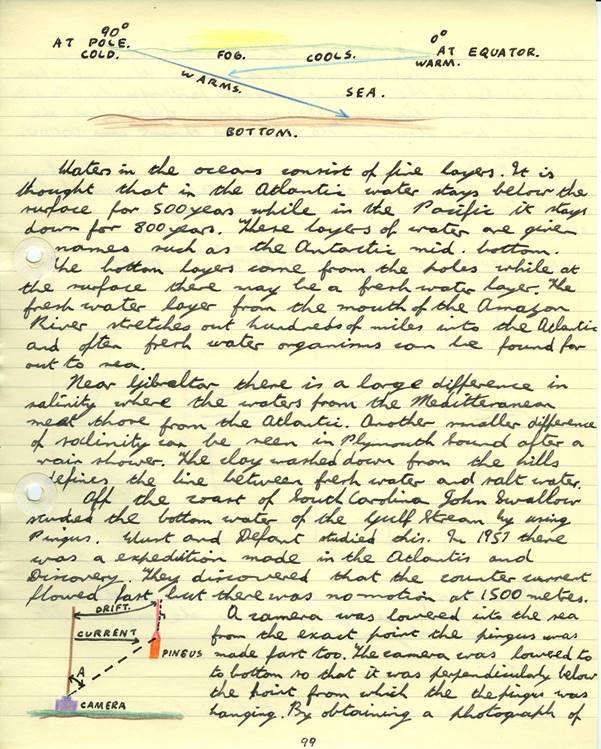 90°
AT POLE.
COLD.
FOG.
COOLS.
0°
AT EQUATOR.
WARM.
WARMS.
SEA.
BOTTOM.
Waters in the oceans consist of five layers. It is
thought that in the Atlantic water stays below the
surface for 500 years while in the Pacific it stays
down for 800 years. These layers of water are given
names such as the Antartic mid. bottom.
The bottom layers come from the poles while at
the surface there may be a fresh water layer. The
fresh water layer from the mouth of the Amazon
River stretches out hundreds of miles into the Atlantic
and often fresh water organisms can be found far
out to sea.
Near Gibraltar there is a large difference in
salinity where the waters from the Mediterranean
meet those from the Atlantic. Another smaller difference
of salinity can be seen in Plymouth Sound after a
rain shower. The clay washed down from the hills
defines the line between fresh water and salt water.
Off the coast of South Carolina John Swallow
studied the bottom water of the Gulf Stream by using
Pingus. Wust and Defant studied this. In 1957 there
was a expedition made in the Atlantis and
Discovery. They discovered that the counter current
flowed fast but there was no motion at 1500 metres.
DRIFT.
CURRENT
PINGUS
A
CAMERA
A camera was lowered into the sea
from the exact point the pingus was
made fast too. The camera was lowered to
to bottom so that it was perpendicularly below
the point from which the the pingus was
hanging. By obtaining a photograph of
99